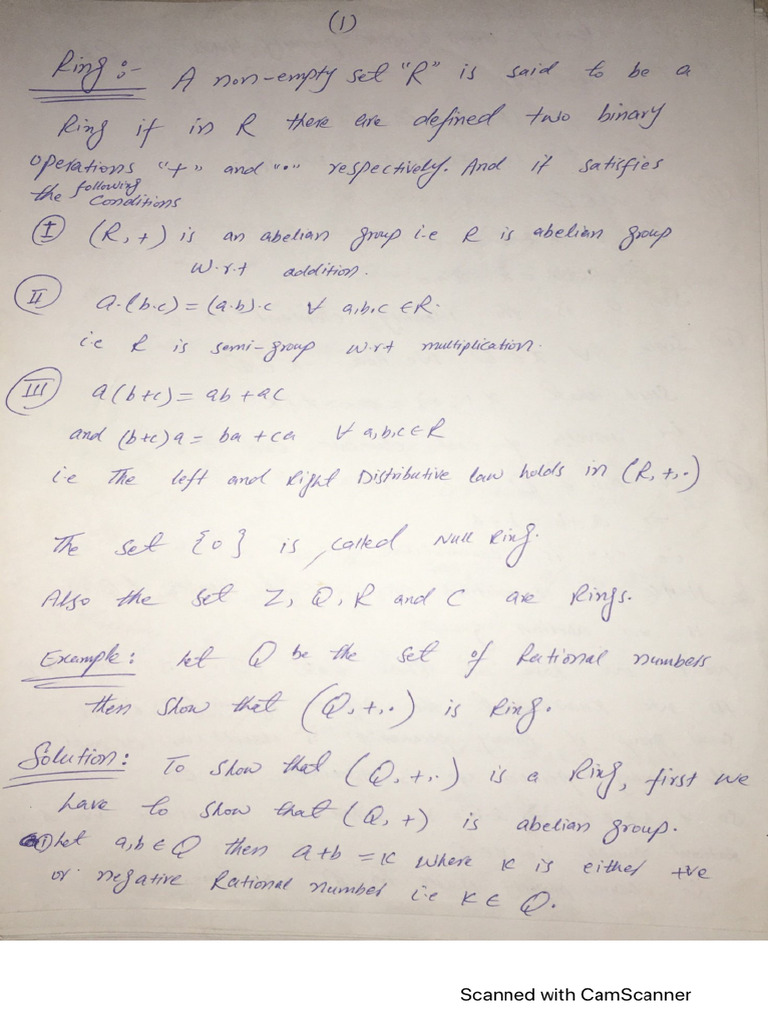 (1)
Ring :- A non-empty set "R" is said to be a
Ring if in R there are defined two binary
operations "+" and "•" respectively. And it satisfies
the following conditions
(I) (R, +) is an abelian group i.e R is abelian group
w.r.t addition.
(II) a.(b.c) = (a.b).c ∀ a,b,c ∈ R.
i.e R is semi-group w.r.t multiplication.
(III) a(b+c) = ab + ac
and (b+c)a = ba + ca ∀ a,b,c ∈ R
i.e The left and Right Distributive law holds in (R, +, .)
The set {0} is called Null Ring.
Also the set Z, Q, R and C are Rings.
Example: Let Q be the set of Rational numbers
then show that (Q, +, .) is Ring.
Solution: To show that (Q, +, .) is a Ring, first we
have to show that (Q, +) is abelian group.
(i) Let a,b ∈ Q then a+b = K where K is either +ve
or negative Rational number i.e K ∈ Q.
Scanned with CamScanner